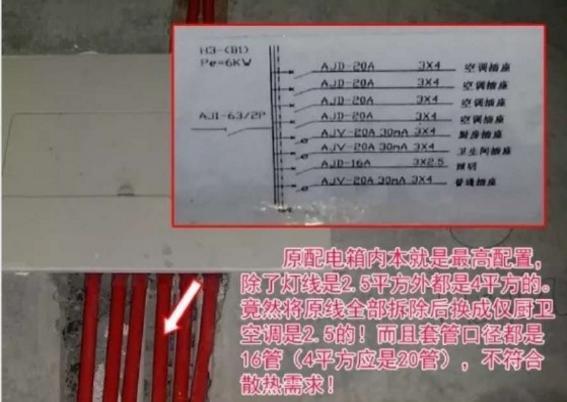 H3-(B1)
Pe=6KW
AJD-20A 3X4 空调插座
AJD-20A 3X4 空调插座
AJD-20A 3X4 空调插座
AJD-20A 3X4 空调插座
AJ1-63/2P
AJV-20A 30mA 3X4 厨房插座
AJV-20A 30mA 3X4 卫生间插座
AJD-16A 3X2.5 照明
AJV-20A 30mA 3X4 普通插座
原配电箱内本就是最高配置，
除了灯线是2.5平方外都是4平方的。
竟然将原线全部拆除后换成仅厨卫
空调是2.5的！而且套管口径都是
16管（4平方应是20管），不符合
散热需求！